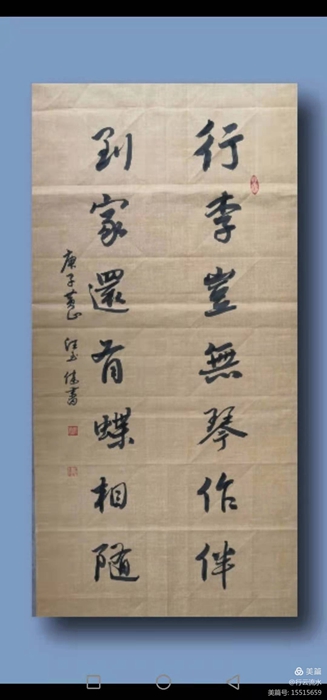 行李豈無琴作伴
到家還有蝶相隨
庚子黄山 書
美篇
@行云流水
美篇号: 15515659